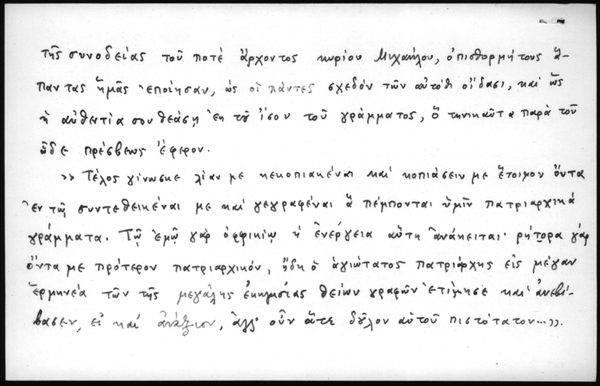 τῆς συνοδείας τοῦ ποτὲ ἄρχοντος κυρίου Μιχαήλου, ὀπισθορμήτους ἅ-
παντας ἡμᾶς ἐποίησαν, ὡς οἱ πάντες σχεδὸν τῶν αὐτόθι οἴδασι, καὶ ὡς
ἡ αὐθεντία σου θεάσῃ ἐκ τοῦ ἴσου τοῦ γράμματος, ὃ τηνικαῦτα παρὰ τοῦ
ὧδε πρέσβεως ἔφερον.
>> Τέλος γίνωσκε λίαν με κεκοπιακέναι καὶ κοπιάσειν με ἕτοιμον ὄντα
ἐν τῷ συντεθεικέναι με καὶ γεγραφέναι ἃ πέμπονται ὑμῖν πατριαρχικὰ
γράμματα. Τῷ ἐμῷ γὰρ ὀφφικίῳ ἡ ἐνέργεια αὕτη ἀνάκειται· ρήτορα γάρ
ὄντα με πρότερον πατριαρχικόν, ἤδη ὁ ἁγιώτατος πατριάρχης εἰς μέγαν
ἑρμηνέα τῶν τῆς μεγάλης ἐκκλησίας θείων γραφῶν ἐτίμησε καὶ ἀνεβί-
βασεν, εἰ καὶ ἀνάξιον, ἀλλ' οὖν ἅτε δοῦλον αὐτοῦ πιστότατον...>>.